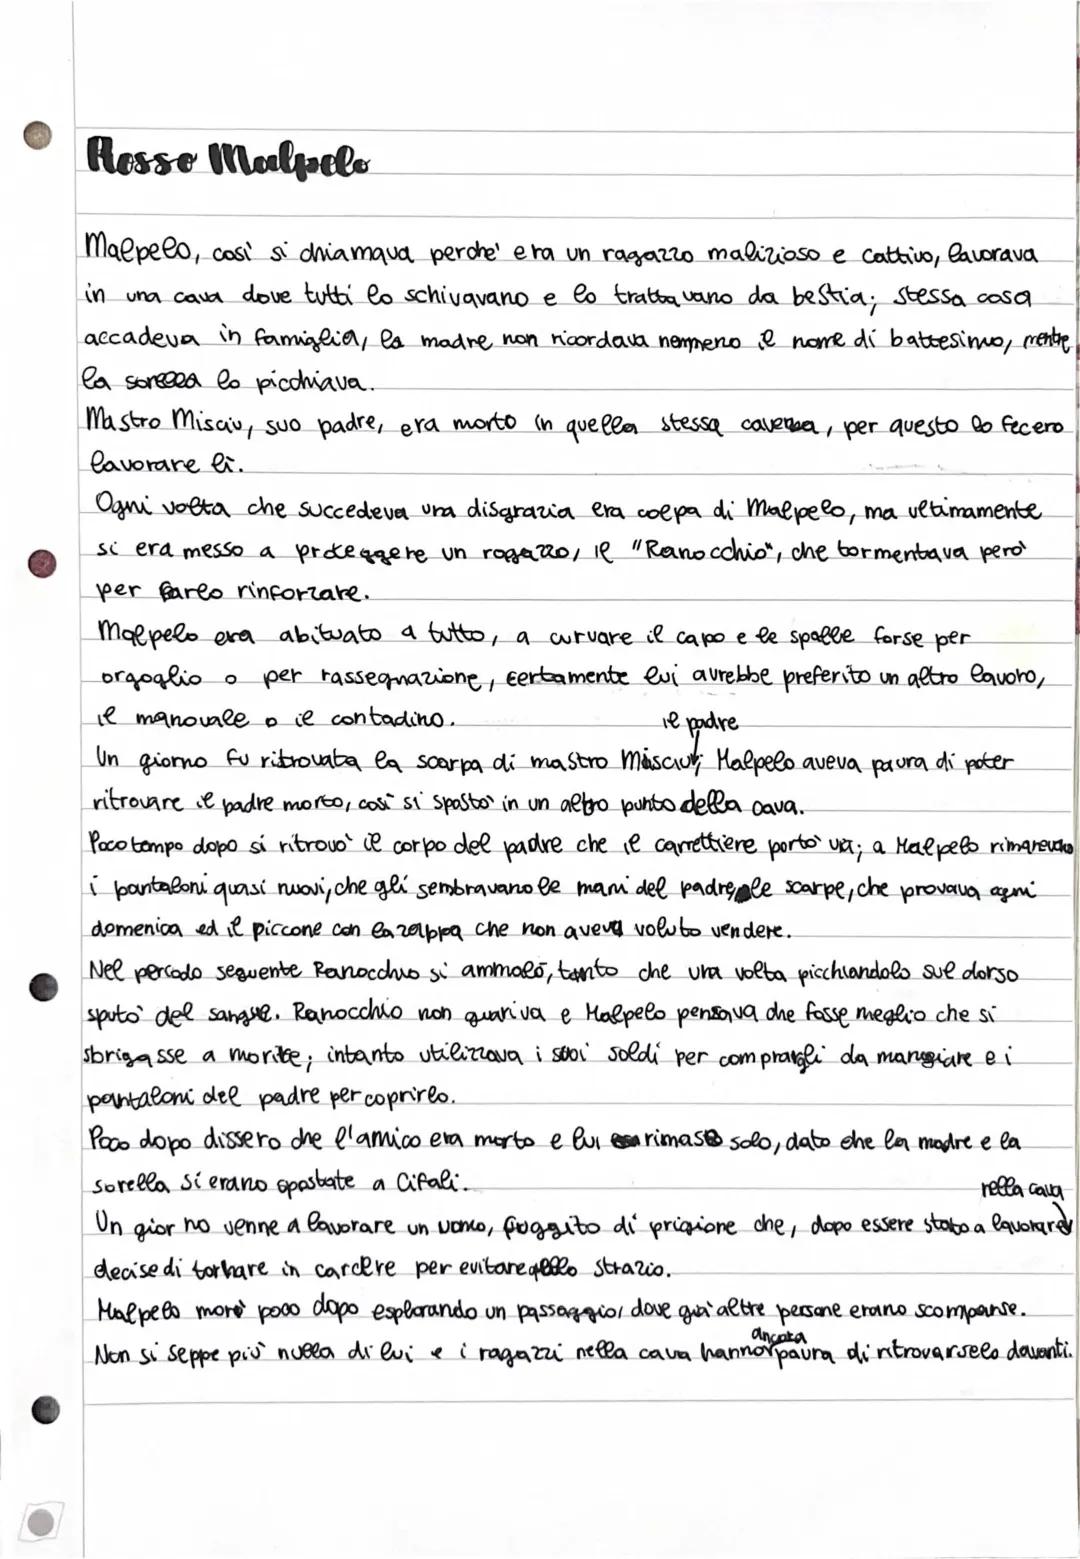 Rosso Malpelo
Malpelo, così si chiamava perche' era un ragazzo malizioso e cattivo, lavorava
in una cava dove tutti lo schivavano e lo trattavano da bestia; stessa cosa
accadeva in famiglia, la madre non ricordava nemmeno il nome di battesimo, mentre
la sorella lo picchiava.
Mastro Misciu, suo padre, era morto in quella stessa caverna, per questo lo fecero
lavorare lì.
Ogni volta che succedeva una disgrazia era colpa di Malpelo, ma ultimamente
si era messo a proteggere un ragazzo, il "Ranocchio", che tormentava però
per farlo rinforzare.
Malpelo era abituato a tutto, a curvare il capo e le spalle forse per
orgoglio o per rassegnazione, certamente lui avrebbe preferito un altro lavoro,
il manovale o il contadino.
il padre
Un giorno fu ritrovata la scarpa di mastro Misciu; Malpelo aveva paura di poter
ritrovare il padre morto, così si spostò in un altro punto della cava.
Poco tempo dopo si ritrovò il corpo del padre che il carrettiere portò via; a Malpelo rimanevano
i pantaloni quasi nuovi, che gli sembravano le mani del padre, le scarpe, che provava ogni
domenica ed il piccone con la zappa che non aveva voluto vendere.
Nel periodo seguente Ranocchio si ammalò, tanto che una volta picchiandolo sul dorso
sputò del sangue. Ranocchio non guariva e Malpelo pensava che fosse meglio che si
sbrigasse a morire; intanto utilizzava i suoi soldi per comprargli da mangiare e i
pantaloni del padre per coprirlo.
Poco dopo dissero che l'amico era morto e lui rimase solo, dato che la madre e la
sorella si erano spostate a Cifali.
nella cava
Un giorno venne a lavorare un uomo, fuggito di prigione che, dopo essere stato a lavorare
decise di tornare in carcere per evitare quello strazio.
Malpelo morì poco dopo esplorando un passaggio, dove già altre persone erano scomparse.
ancora
Non si seppe più nulla di lui e i ragazzi nella cava hanno paura di ritrovarselo davanti.